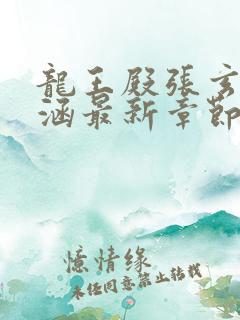 龍王殿張玄
涵最新章節
憶情缘
未经同意禁止转载